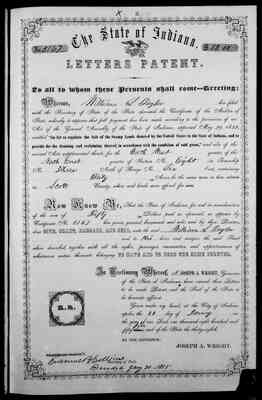 The State of Indiana.
LETTERS PATENT.
To all to whom these Presents shall come—Greeting:
Whereas, William S Taylor has filed
with the Secretary of State of the State aforesaid, the Certificate of the Auditor of
State, whereby it appears that full payment has been made according to the provisions of an
Act of the General Assembly of the State of Indiana, approved May 29, 1852,
entitled "An Act to regulate the sale of the Swamp Lands donated by the United States to the State of Indiana, and to
provide for the draining and reclaiming thereof, in accordance with the condition of said grant," and also of the
several Acts supplemental thereto for the North West quarter of the
North East quarter of Section No. Eight in Township
No. Three North of Range No. Six East, containing
Forty Acres
in Scott County, where said lands were offered for sale.
Now Know Ye, That the State of Indiana, for and in consideration
of the sum of Fifty Dollars
Certificate No.
GIVE, GRANT, BARGAIN, AND SELL, unto the said William S Taylor
and to his heirs and assigns the said Tract
above described, together with all the rights, privileges, immunities, and appurtenances of
whatsoever nature thereunto belonging TO HAVE AND TO HOLD THE SAME FOREVER.
In Testimony Whereof, I, JOSEPH A. WRIGHT, Governor
of the State of Indiana, have caused these Letters
to be made Patent and the Seal of the State to
be hereunto affixed.
Given under my hand, at the City of Indianapolis,
L.S.
the year of our Lord one thousand eight hundred and
and of the State the thirty-ninth.
BY THE GOVERNOR,
JOSEPH A. WRIGHT.
Secretary of State